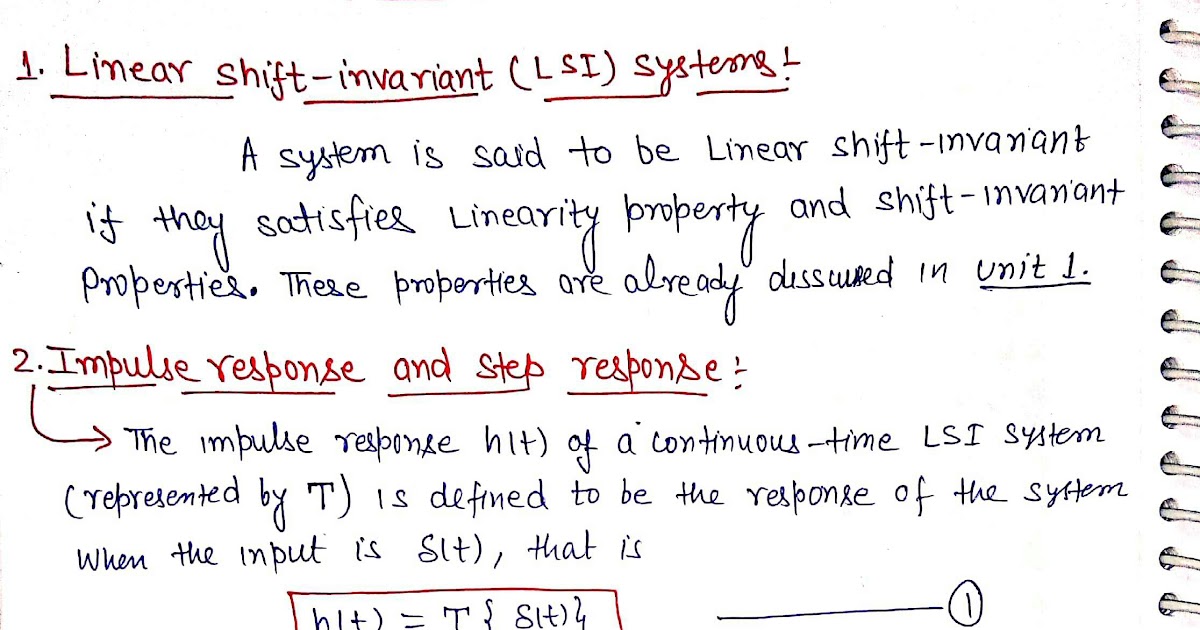 1. Linear shift-invariant (LSI) systems:-
A system is said to be Linear shift-invariant
if they satisfies Linearity property and shift-invariant
Properties. These properties are already disscused in unit 1.
2. Impulse response and step response:-
→ The impulse response h(t) of a continuous-time LSI system
(represented by T) is defined to be the response of the system
When the input is δ(t), that is
h(t) = T { δ(t)} ——— ①